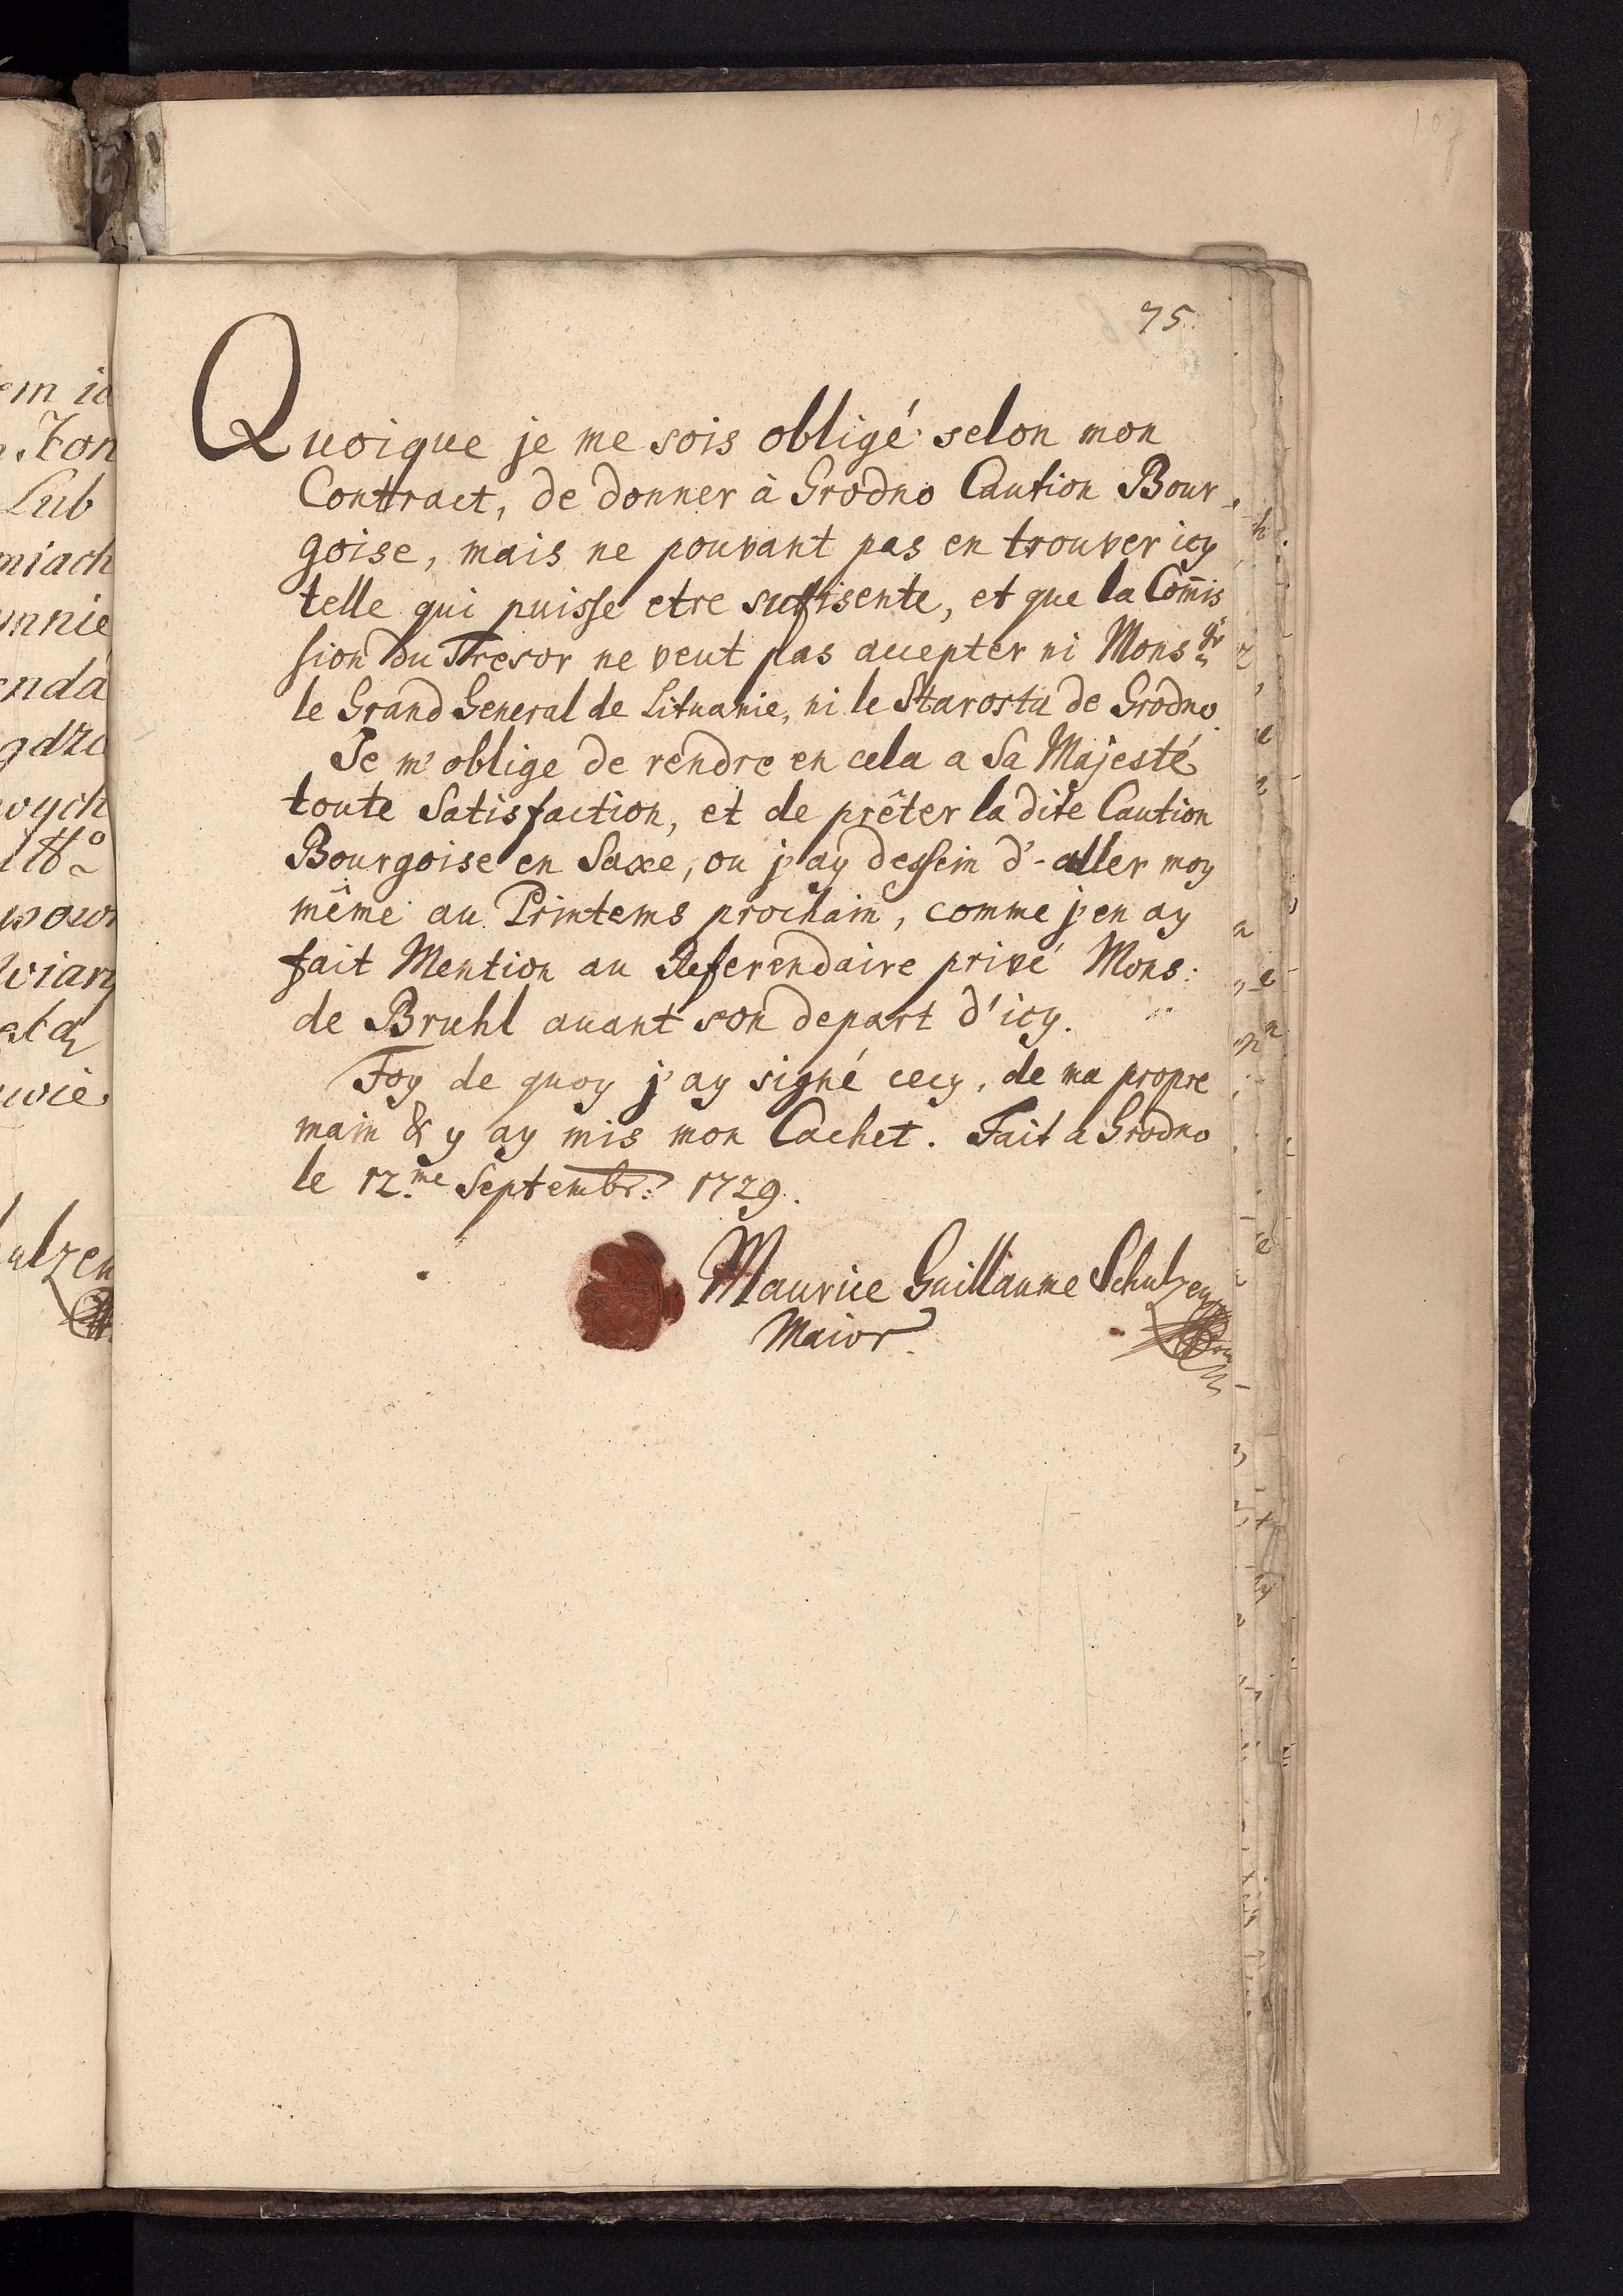 107
75.
Quoique je me sois obligé selon mon
Conttract, de donner à Grodno Caution Bour-
goise, mais ne pouvant pas en trouver icy
telle qui puisse etre suffisente, et que la Com̄is
sion du Tresor ne veut pas accepter ni Monsgr
le Grand General de Lituanie, ni le Starosta de Grodno.
Je m'oblige de rendre en cela a Sa Majesté
toute Satisfaction, et de prêter la dite Caution
Bourgoise en Saxe, ou j'ay dessein d'-aller moy
même au Printems prochain, comme j'en ay
fait Mention au Referendaire privé Mons:
de Bruhl avant son depart d'icy.
Foy de quoy j'ay signé cecy, de ma propre
main & y ay mis mon Cachet. Fait a Grodno
le 12.me Septembr: 1729.
Maurice Guillaume Schulzen
Maior.